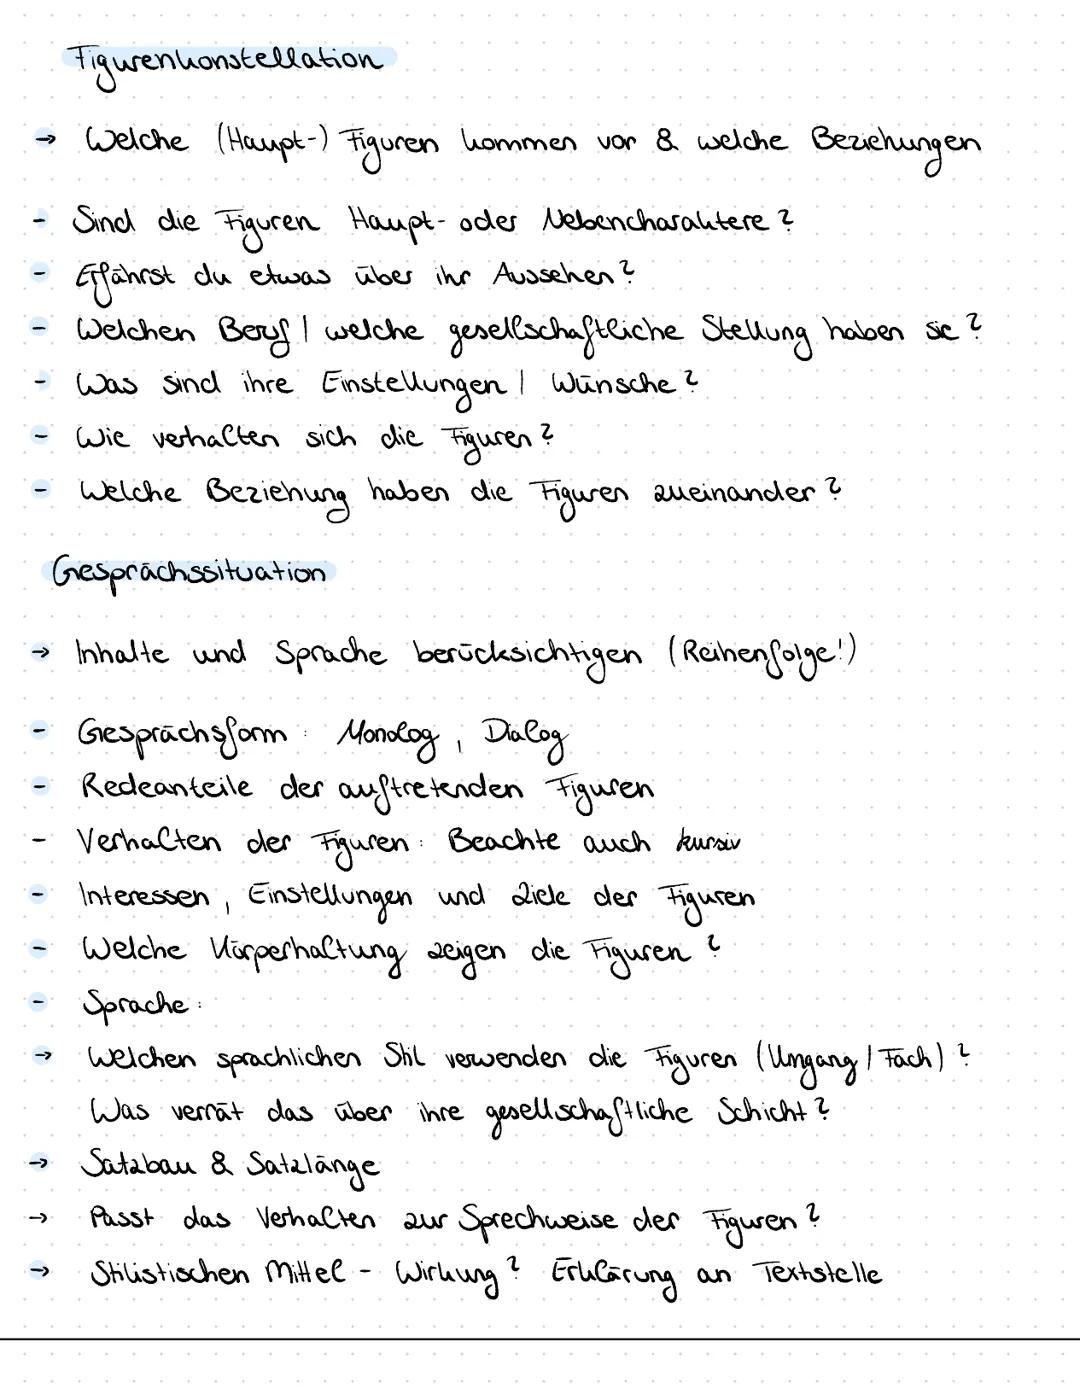 Figurenkonstellation
→ Welche (Haupt-) Figuren kommen vor & welche Beziehungen
- Sind die Figuren Haupt- oder Nebencharaktere?
- Erfährst du etwas über ihr Aussehen?
- Welchen Beruf / welche gesellschaftliche Stellung haben sie?
- Was sind ihre Einstellungen / Wünsche?
- Wie verhalten sich die Figuren?
- Welche Beziehung haben die Figuren zueinander?
Gesprächssituation
→ Inhalte und Sprache berücksichtigen (Reihenfolge!)
- Gesprächsform: Monolog, Dialog
- Redeanteile der auftretenden Figuren
- Verhalten der Figuren: Beachte auch kursiv
- Interessen, Einstellungen und Ziele der Figuren
- Welche Körperhaltung zeigen die Figuren?
- Sprache:
→ Welchen sprachlichen Stil verwenden die Figuren (Umgang / Fach)?
Was verrät das über ihre gesellschaftliche Schicht?
→ Satzbau & Satzlänge
→ Passt das Verhalten zur Sprechweise der Figuren?
→ Stilistischen Mittel - Wirkung? Erklärung an Textstelle